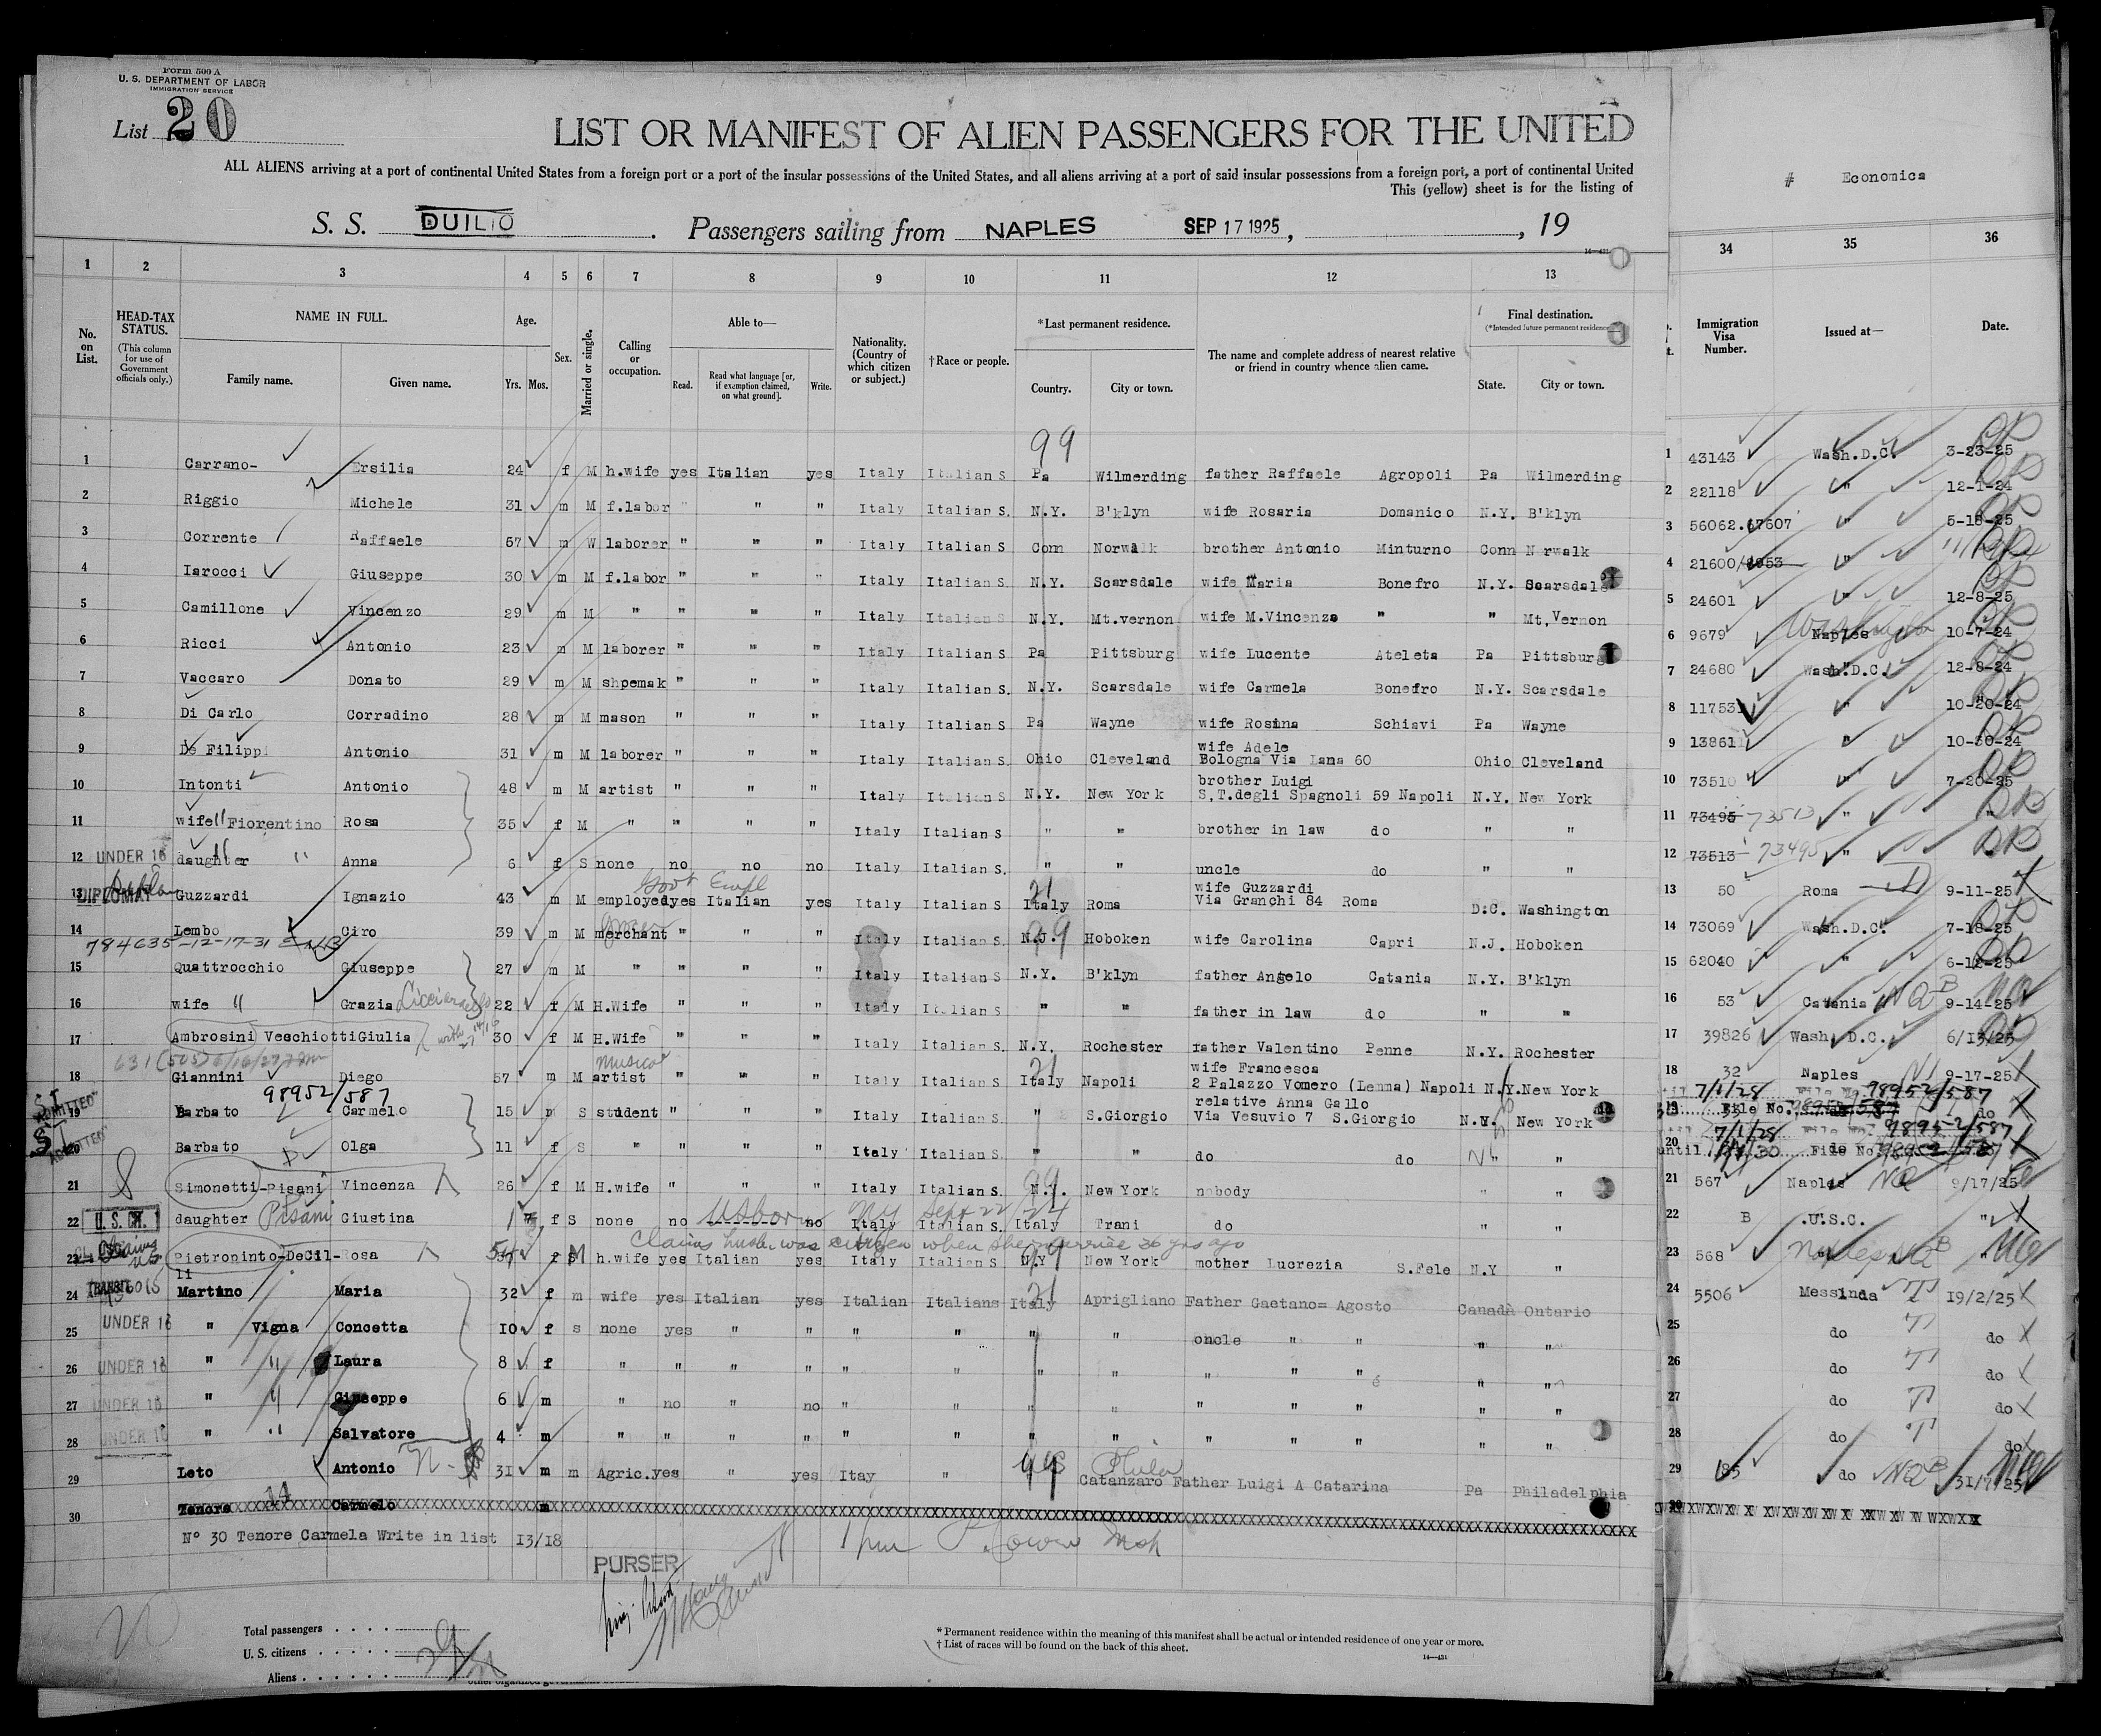 Form 500 A
U. S. DEPARTMENT OF LABOR
IMMIGRATION SERVICE
List 20
LIST OR MANIFEST OF ALIEN PASSENGERS FOR THE UNITED
ALL ALIENS arriving at a port of continental United States from a foreign port or a port of the insular possessions of the United States, and all aliens arriving at a port of said insular possessions from a foreign port, a port of continental United
This (yellow) sheet is for the listing of
# Economica
S. S. DUILIO . Passengers sailing from NAPLES SEP 17 1925 , , 19
14—431
1 2 3 4 5 6 7 8 9 10 11 12 13 34 35 36
No. on List.
HEAD-TAX STATUS.
(This column for use of Government officials only.)
NAME IN FULL.
Family name. Given name.
Age.
Yrs. Mos.
Sex.
Married or single.
Calling or occupation.
Able to—
Read. Read what language [or, if exemption claimed, on what ground]. Write.
Nationality. (Country of which citizen or subject.)
†Race or people.
*Last permanent residence.
Country. City or town.
The name and complete address of nearest relative or friend in country whence alien came.
Final destination.
(*Intended future permanent residence
State. City or town.
Immigration Visa Number.
Issued at—
Date.
99
1 Carrano- Ersilia 24 f M h.wife yes Italian yes Italy Italian S Pa Wilmerding father Raffaele Agropoli Pa Wilmerding 1 43143 Wash.D.C. 3-23-25
2 Riggio Michele 31 m M f.labor " " " Italy Italian S. N.Y. B'klyn wife Rosaria Domanico N.Y. B'klyn 2 22118 " 12-1-24
3 Corrente Raffaele 57 m W laborer " " " Italy Italian S Conn Norwalk brother Antonio Minturno Conn N rwalk 3 56062.67607 " 5-18-25
4 Iarocci Giuseppe 30 m M f.labor " " " Italy Italian S. N.Y. Scarsdale wife Maria Bonefro N.Y. Scarsdale 4 21600/ "
5 Camillone Vincenzo 29 m M " " " " Italy Italian S N.Y. Mt.vernon wife M.Vincenza " " Mt.Vernon 5 24601 " 12-8-25
6 Ricci Antonio 23 m M laborer " " " Italy Italian S Pa Pittsburg wife Lucente Ateleta Pa Pittsburg 6 9679 Naples Washington 10-7-24
7 Vaccaro Donato 29 m M shpemak " " " Italy Italian S. N.Y. Scarsdale wife Carmela Bonefro N.Y. Scarsdale 7 24680 Wash.D.C. 12-8-24
8 Di Carlo Corradino 28 m M mason " " " Italy Italian S Pa Wayne wife Rosina Schiavi Pa Wayne 8 11753 " 10-20-24
9 De Filippi Antonio 31 m M laborer " " " Italy Italian S. Ohio Cleveland wife Adele Bologna Via Lana 60 Ohio Cleveland 9 13861 " 10-30-24
10 Intonti Antonio 48 m M artist " " " Italy Italian S N.Y. New York brother Luigi S.T.degli Spagnoli 59 Napoli N.Y. New York 10 73510 " 7-20-25
11 wife " Fiorentino Rosa 35 f M " " " " Italy Italian S " " brother in law do " " 11 73495 73513 " "
12 UNDER 16 daughter " Anna 6 f S none no no no Italy Italian S. " " uncle do " " 12 73513 73495 "
Gov't Empl 21
13 DIPLOMAT Guzzardi Ignazio 43 m M employed yes Italian yes Italy Italian S Italy Roma wife Guzzardi Via Granchi 84 Roma D.C. Washington 13 50 Roma 9-11-25
14 Lembo Ciro 39 m M merchant " " " Italy Italian S. N.J. 99 Hoboken wife Carolina Capri N.J. Hoboken 14 73069 Wash.D.C. 7-18-25
784635-12-17-31
15 Quattrocchio Giuseppe 27 m M " " " " Italy Italian S N.Y. B'klyn father Angelo Catania N.Y. B'klyn 15 62040 " 6-12-25
16 wife " Grazia 22 f M H.Wife " " " Italy Italian S " " father in law do " " 16 53 Catania NQB 9-14-25
17 Ambrosini Vecchiotti Giulia 30 f M H.Wife " " " Italy Italian S. N.Y. Rochester father Valentino Penne N.Y. Rochester 17 39826 Wash. D.C. 6/13/25
Musical 21
18 Giannini Diego 57 m M artist " " " Italy Italian S Italy Napoli wife Francesca 2 Palazzo Vomero (Lemma) Napoli N.Y. New York 18 32 Naples 9-17-25
98952/587
7/1/28 File No. 98952/587
19 S I ADMITTED Barbato Carmelo 15 m S student " " " Italy Italian S " S.Giorgio relative Anna Gallo Via Vesuvio 7 S.Giorgio N.Y. New York 19 File No. do
7/1/28 98952/587
20 S I ADMITTED Barbato Olga 11 f S " " " " Italy Italian S. " " do do " " 20 until File No.
21 Simonetti-Pisani Vincenza 26 f M H.wife " " " Italy Italian S. N.Y. New York nobody " " 21 567 Naples NQ 9/17/25
22 U. S. daughter Pisani Giustina 1 f S none no US born no Italy Italian S. Italy Trani do " " 22 B .U.S.C. "
NY Sept 22/24
claims husb. was citizen when she married 26 yrs ago
23 Pietroninto-DeCil-li Rosa 54 f M h.wife yes Italian yes Italy Italian S N.Y New York mother Lucrezia S.Fele N.Y " 23 568 Naples NQB "
24 TRANSIT Martino Maria 32 f m wife yes Italian yes Italian Italians Italy 21 Aprigliano Father Gaetano= Agosto Canada Ontario 24 5506 Messinda T 19/2/25
25 UNDER 16 " Vigna Concetta 10 f s none yes " " " " " " oncle " " " " 25 do T do
26 UNDER 16 " " Laura 8 f " " " " " " " " " " " " " 26 do T do
27 UNDER 16 " " Giuseppe 6 m " no " no " " " " " " " " " 27 do T do
28 UNDER 16 " " Salvatore 4 m " " " " " " " " " " " " " 28 do T do
29 Leto Antonio 31 m m Agric. yes " yes Itay " 99 Phila Catanzaro Father Luigi A Catarina Pa Philadelphia 29 85 do NQB 31/7/25
30 Tenore 14 Carmelo m 30
N° 30 Tenore Carmela Write in list 13/18
PURSER
Total passengers . . . .
U. S. citizens . . . . .
Aliens . . . . . .
29
* Permanent residence within the meaning of this manifest shall be actual or intended residence of one year or more.
† List of races will be found on the back of this sheet.
14—431